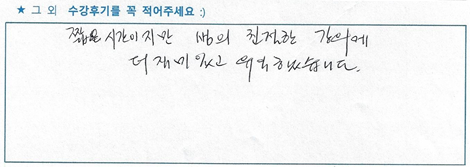 ★ 그 외 수강후기를 꼭 적어주세요 :)
짧은 시간이지만 쌤의 친절한 강의에
더 재미있고 유익했습니다.